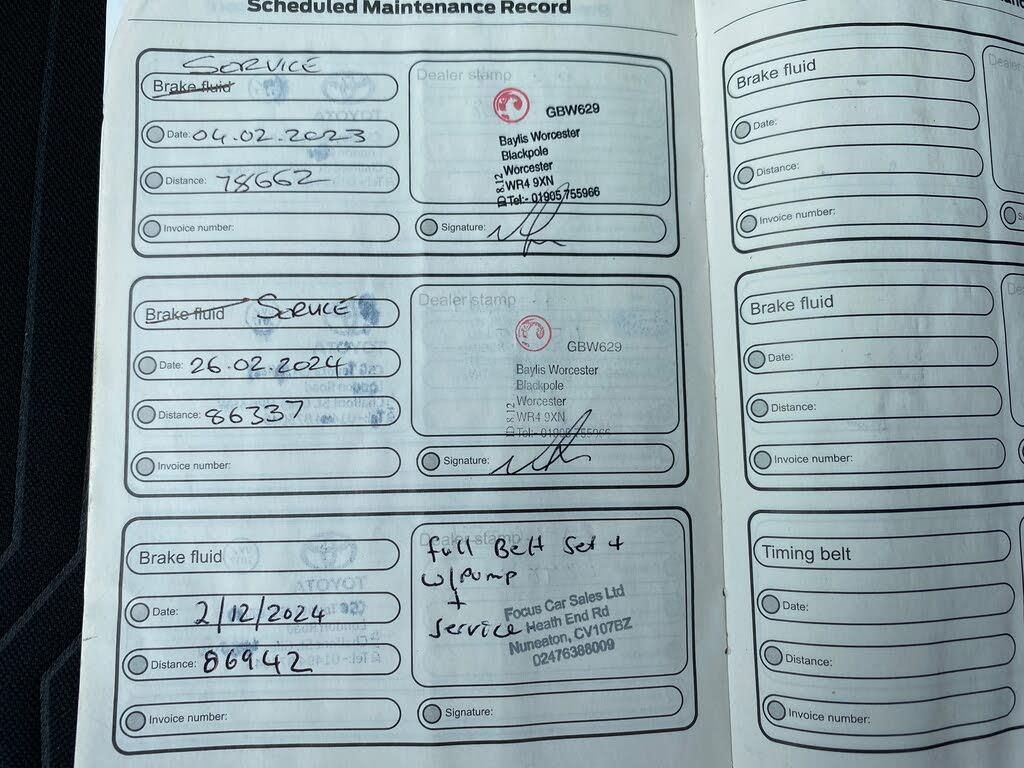 Scheduled Maintenance Record
SERVICE
Brake fluid
Date: 04.02.2023
Distance: 78662
Invoice number:
Dealer stamp
GBW629
Baylis Worcester
Blackpole
Worcester
WR4 9XN
Tel:- 01905 755966
ID 8.12
Signature:
Brake fluid SERVICE
Date: 26.02.2024
Distance: 86337
Invoice number:
Dealer stamp
GBW629
Baylis Worcester
Blackpole
Worcester
WR4 9XN
Tel:- 01905 755966
ID 8.12
Signature:
Brake fluid
Date: 2/12/2024
Distance: 86942
Invoice number:
Dealer stamp
full Belt Set +
w/pump
+
service
Focus Car Sales Ltd
Heath End Rd
Nuneaton, CV107BZ
02476388009
Signature:
Brake fluid
Date:
Distance:
Invoice number:
Dealer
Brake fluid
Date:
Distance:
Invoice number:
Timing belt
Date:
Distance:
Invoice number: